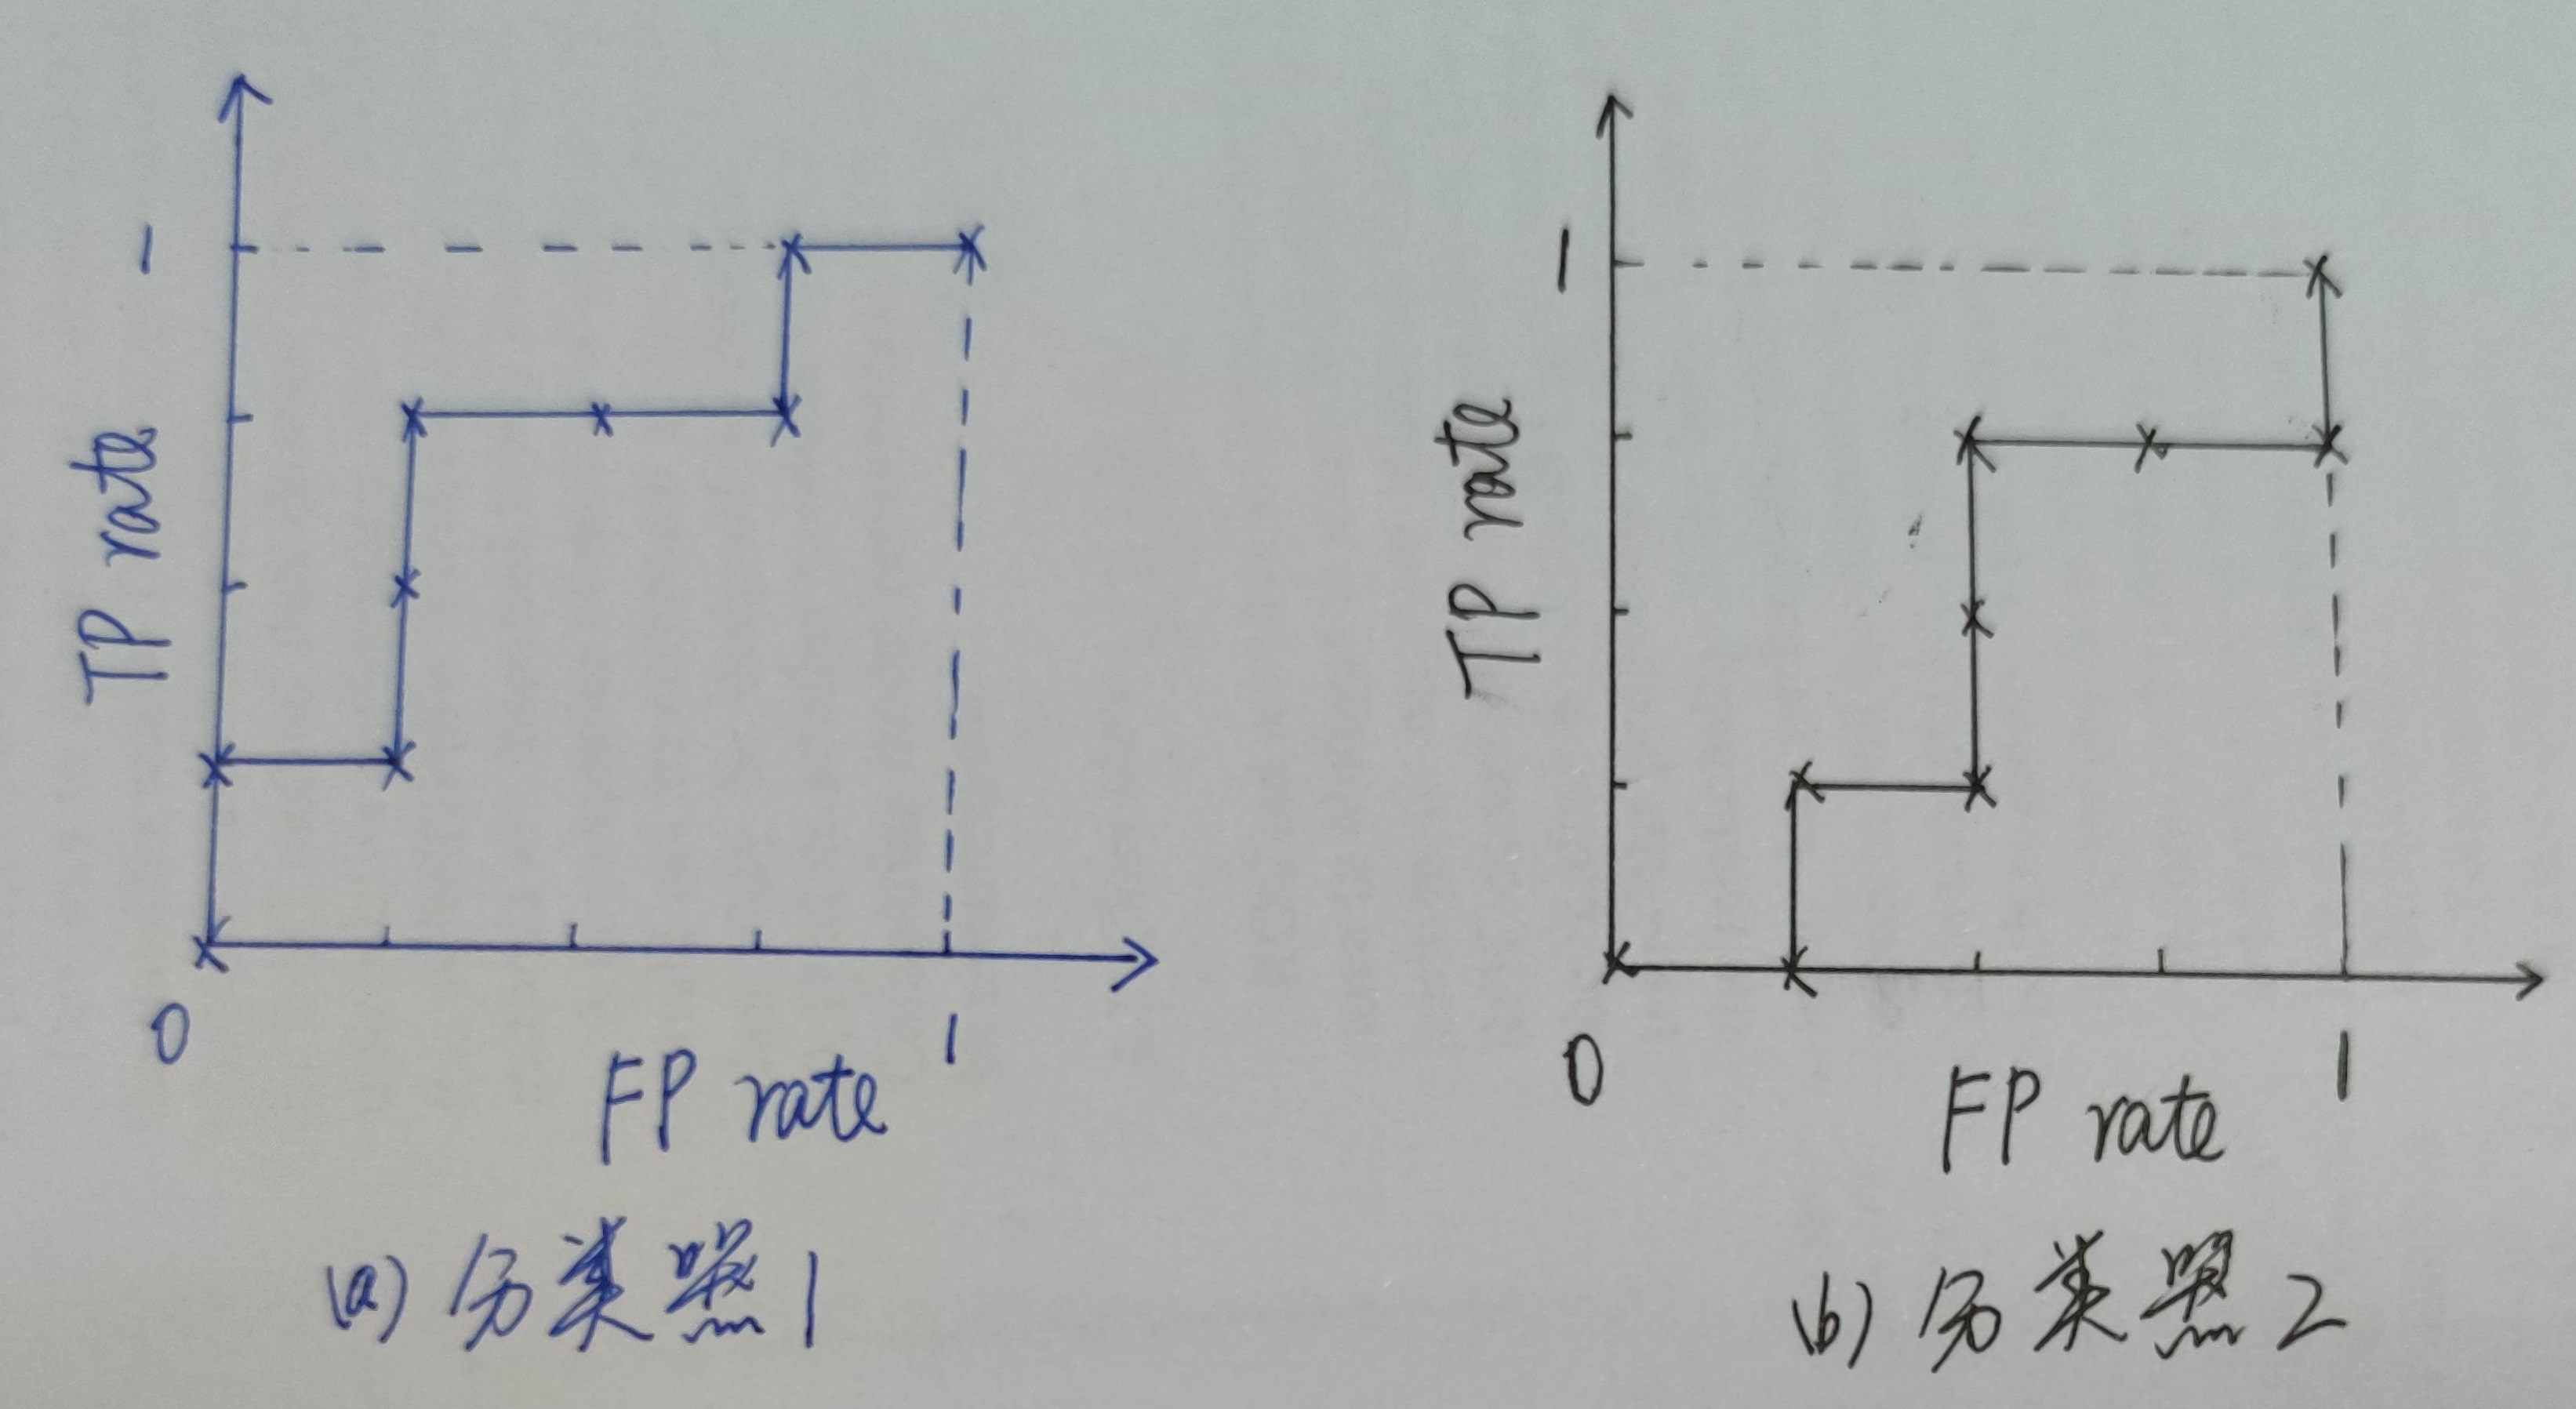 1
TP rate
0
1
FP rate
(a) 分类器1
1
TP rate
0
1
FP rate
(b) 分类器2